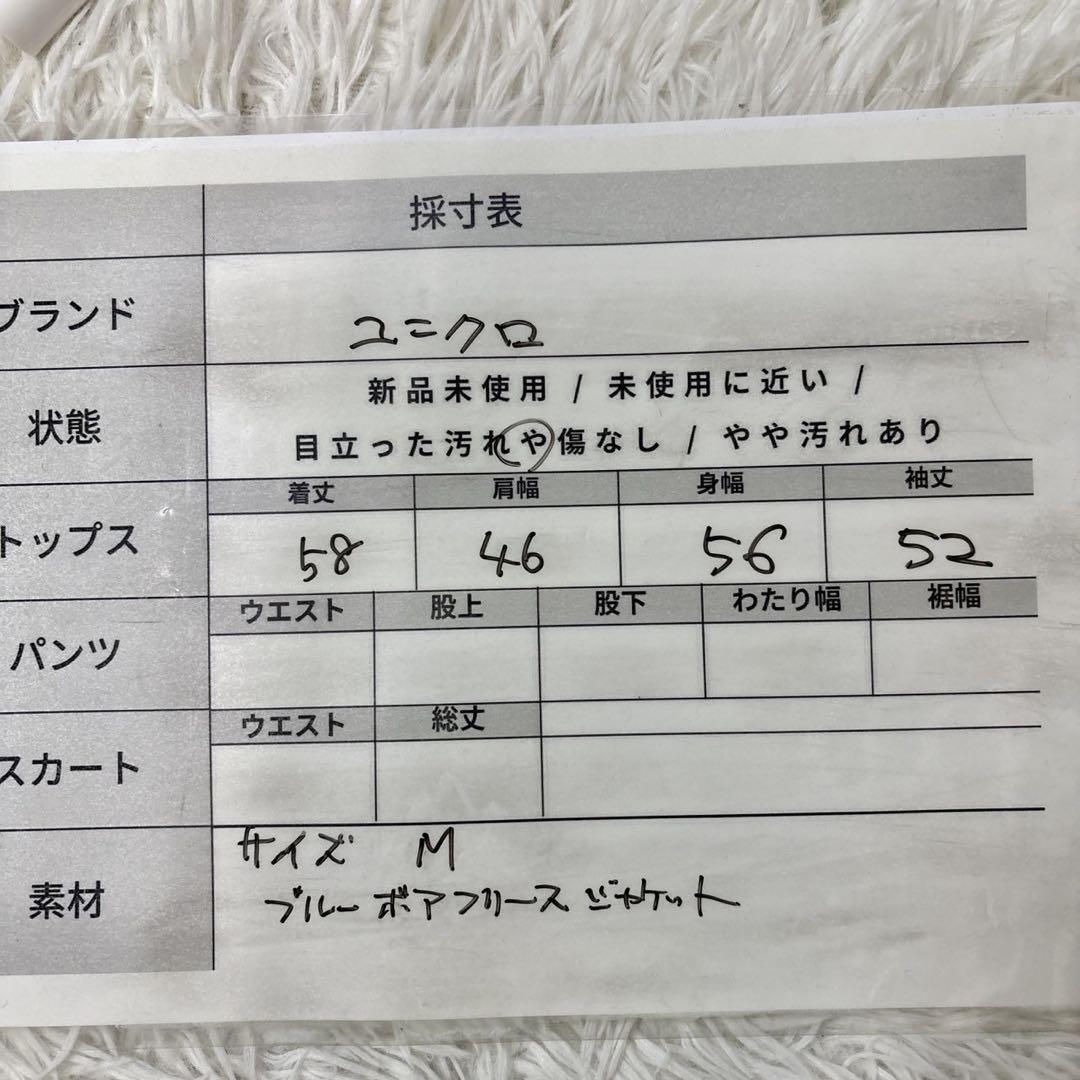 採寸表
ブランド
ユニクロ
状態
新品未使用 / 未使用に近い /
目立った汚れや傷なし / やや汚れあり
トップス
着丈 肩幅 身幅 袖丈
58 46 56 52
パンツ
ウエスト 股上 股下 わたり幅 裾幅
スカート
ウエスト 総丈
素材
サイズ M
ブルー ボアフリース ジャケット